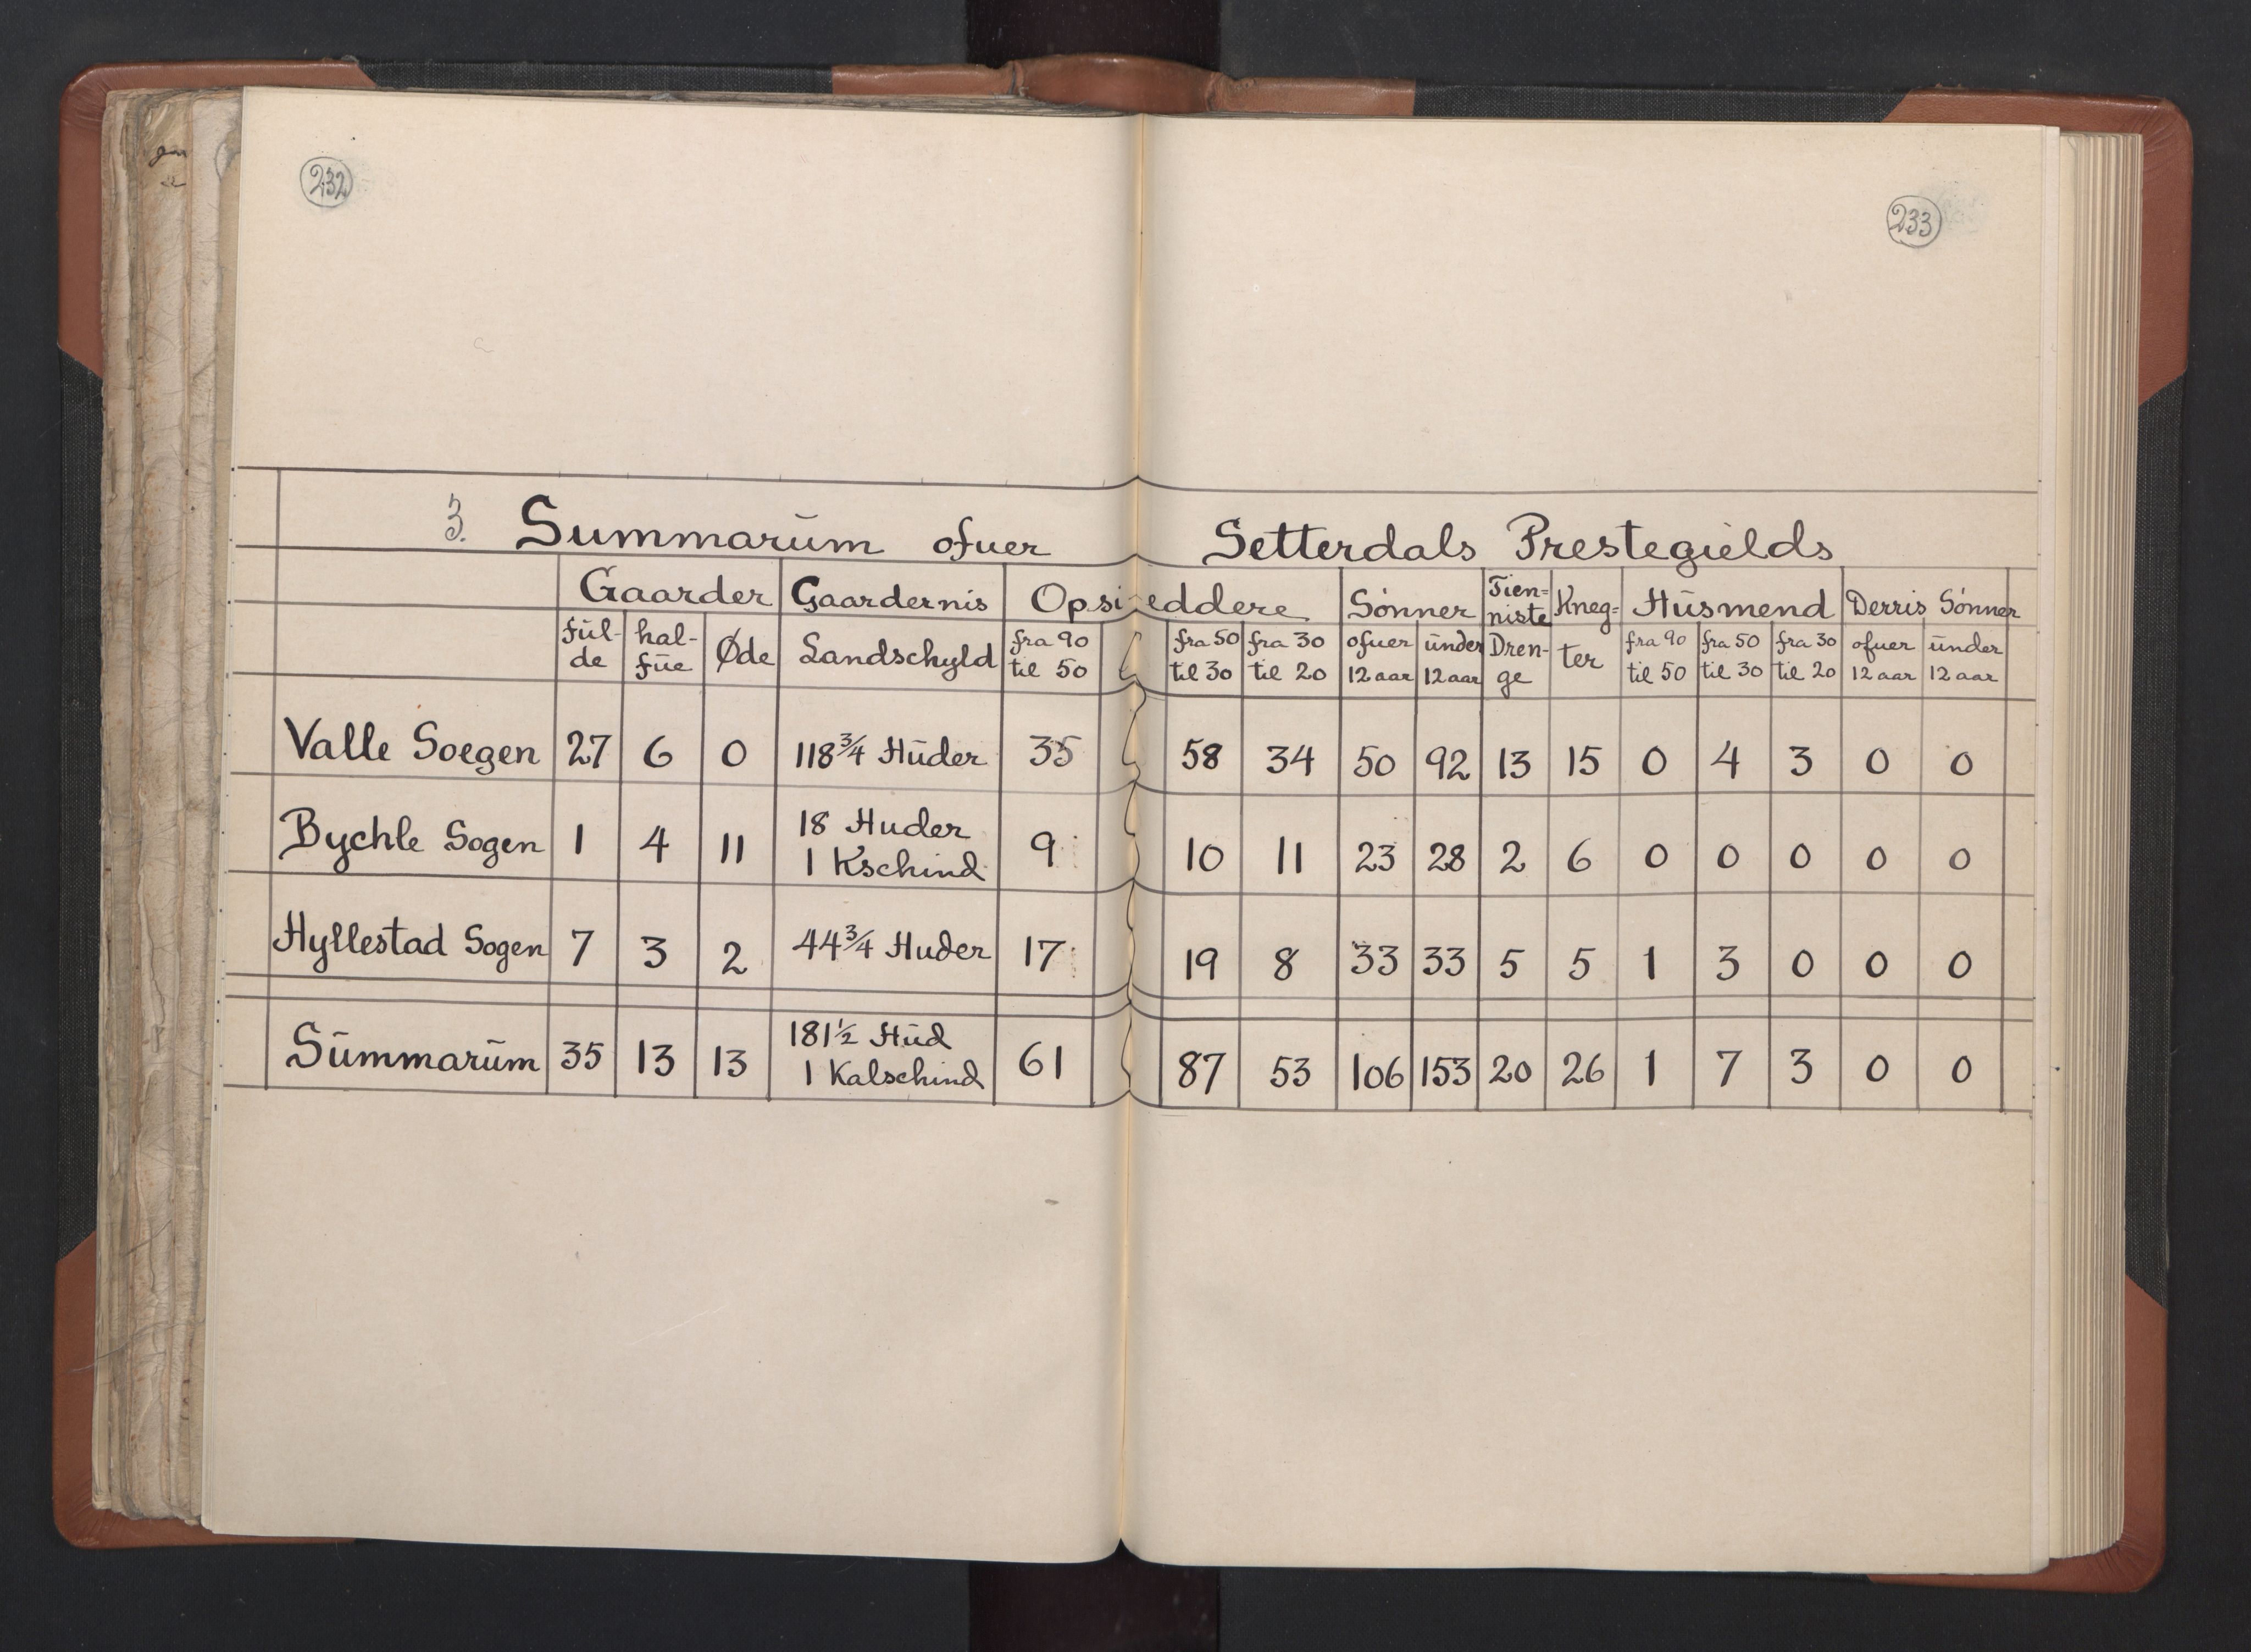 232
233
3. Summarūm ofuer Setterdals Prestegields
Gaarder | Gaardernis | Opsieddere | Sønner | Tien- | Kneg= | Hūsmend | Derris Sønner
niste
fūl- | hal- | Øde | Landschyld | fra 90 | fra 50 | fra 30 | ofuer | ūnder | Dren- | ter | fra 90 | fra 50 | fra 30 | ofuer | ūnder
de | fūe | til 50 | til 30 | til 20 | 12 aar | 12 aar | ge | til 50 | til 30 | til 20 | 12 aar | 12 aar
Valle Soegen | 27 | 6 | 0 | 118 3/4 Hūder | 35 | 58 | 34 | 50 | 92 | 13 | 15 | 0 | 4 | 3 | 0 | 0
Bychle Sogen | 1 | 4 | 11 | 18 Huder | 9 | 10 | 11 | 23 | 28 | 2 | 6 | 0 | 0 | 0 | 0 | 0
1 Kschind
Hyllestad Sogen | 7 | 3 | 2 | 44 3/4 Huder | 17 | 19 | 8 | 33 | 33 | 5 | 5 | 1 | 3 | 0 | 0 | 0
Sūmmarūm | 35 | 13 | 13 | 181 1/2 Hūd | 61 | 87 | 53 | 106 | 153 | 20 | 26 | 1 | 7 | 3 | 0 | 0
1 Kalschind